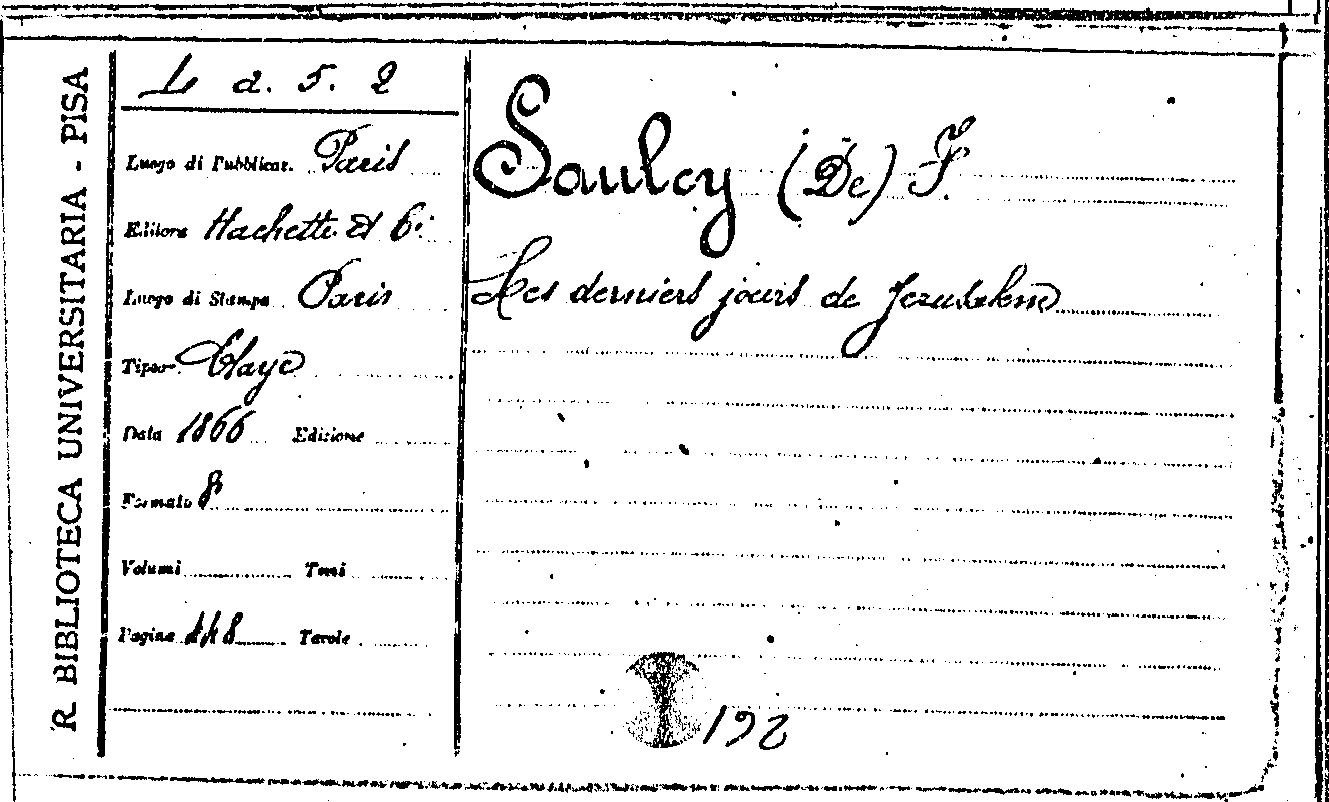 R. BIBLIOTECA UNIVERSITARIA - PISA
L d. 5. 2
Luogo di Pubblicaz. Paris
Editore Hachette et C.ie
Luogo di Stampa Paris
Tipogr. Claye
Data 1866 Edizione
Formato 8°
Volumi Tomi
Pagine 448 Tavole
Saulcy (De) F.
Les derniers jours de Jerusalem
192